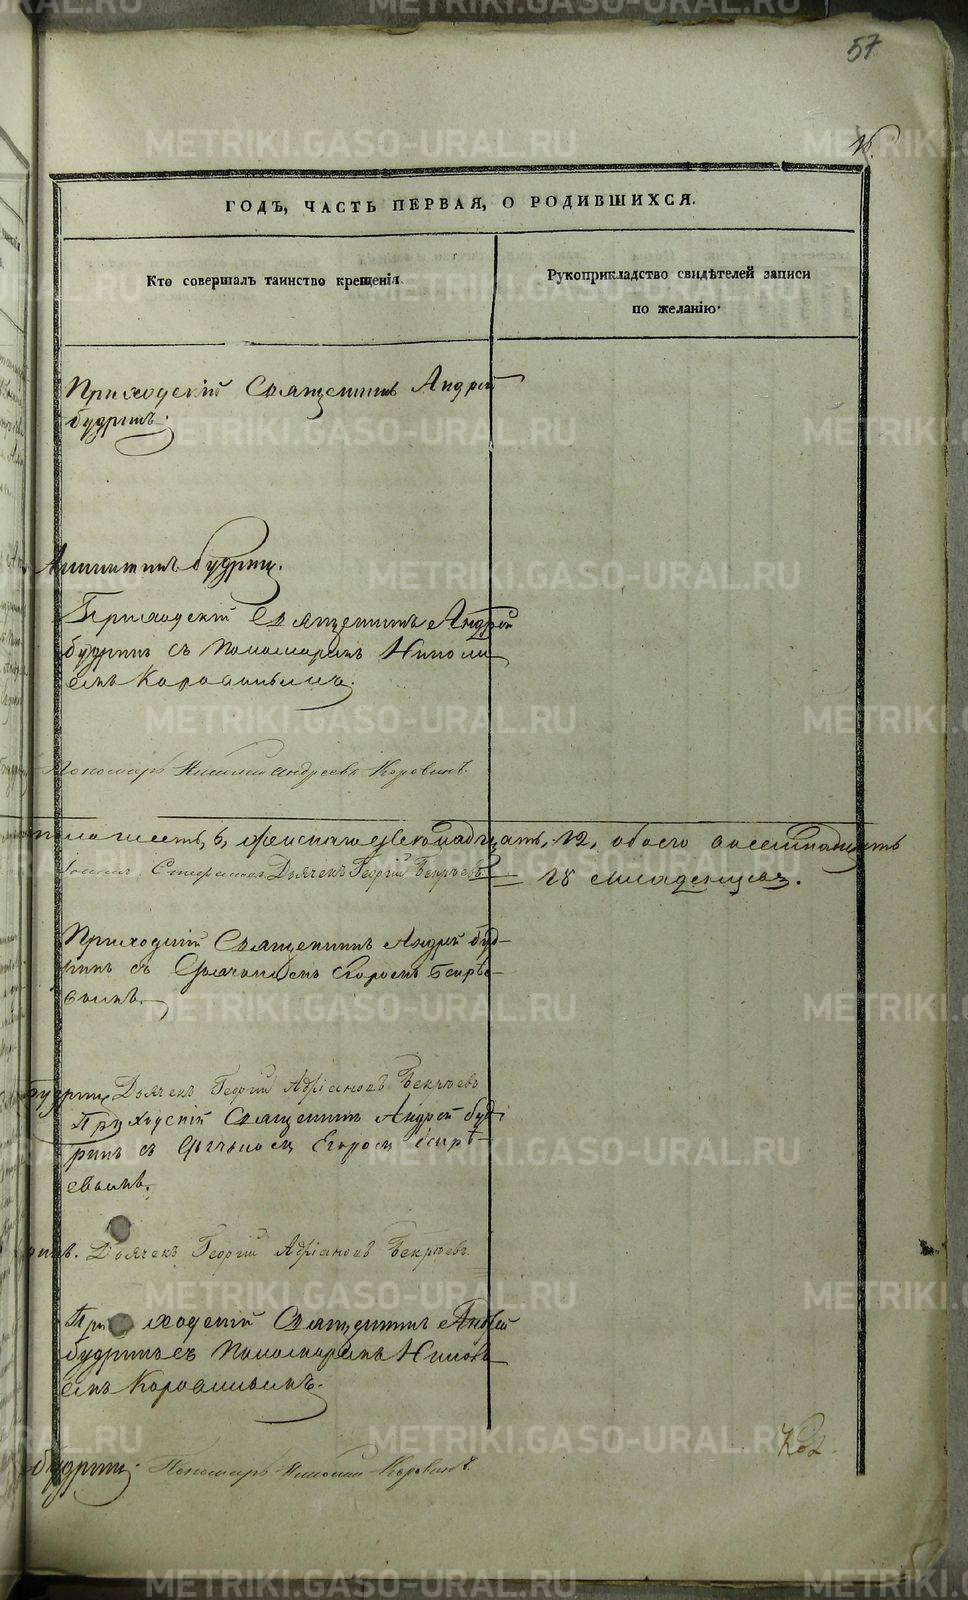 57
16.
ГОДЪ, ЧАСТЬ ПЕРВАЯ, О РОДИВШИХСЯ.
Кто совершалъ таинство крещенія.
Рукоприкладство свидѣтелей записи
по желанію.
Приходскій Священникъ Андрей
Будринъ.
Будринъ.
Приходскій Священникъ Андрей
Будринъ съ Пономаремъ Никола
емъ Коровинымъ.
Пономарь Николай Андреевъ Коровинъ.
пола шесть, 6, женскаго двенадцать, 12, обоего восемнадцать
Дьячекъ Георгій Бекрѣевъ 18 младенцевъ.
Приходскій Священникъ Андрей Буд-
ринъ съ Дьячкомъ Егоромъ
Будринъ Дьячекъ Георгій Адріановъ Бекрѣевъ
Приходскій Священникъ Андрей Буд-
ринъ съ Дьячкомъ Егоромъ Бекрѣ-
евымъ.
Дьячекъ Георгій Адріановъ Бекрѣевъ.
Приходскій Священникъ Андрей
Будринъ съ Пономаремъ Никола
емъ Коровинымъ.
Будринъ. Пономарь Николай Коровинъ.
METRIKI.GASO-URAL.RU